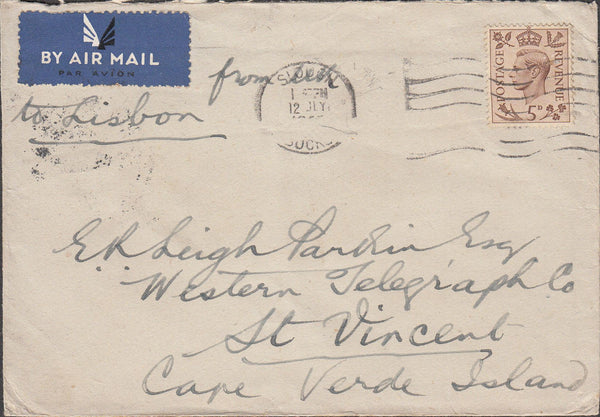 BY AIR MAIL
PAR AVION
from
to Lisbon
12 JLY
POSTAGE REVENUE
5D
E R Leigh Esq
Western Telegraph Co
St Vincent
Cape Verde Island